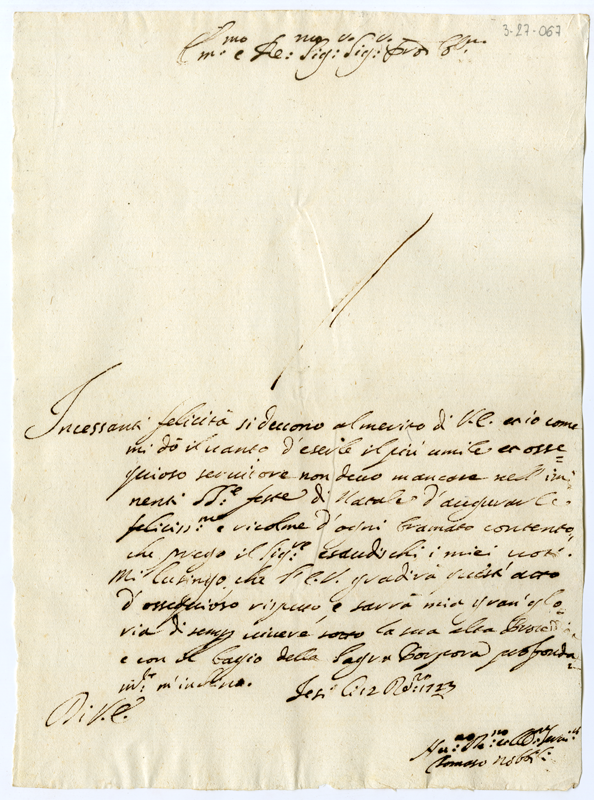 3-27-067
Em:mo e Re:mo Sig:r Sig:r Pron Col:mo
Incessanti felicità si devono al merito di V.E. et io come
mi dò il vanto d'eserle il più umile et osse=
quioso servitore non devo mancare nell'imi
nenti SS:e feste di Natale d'augurarle
feliciss:me e ricolme d'ogni bramato contento,
che prego il Sig:re esaudischi i miei voti.
Mi lusingo che l'E.V. gradirà quest'atto
d'ossequioso rispetto, e sarrà mia gran glo=
ria di sempre vivere sotto la sua alta
e con il bagio della Sagra Porpora profonda
m:te m'inchino. Jesi li 12 Xbre 1723
Di V.E.
Hu:mo De:mo et Obb:mo
Tomaso Nobili